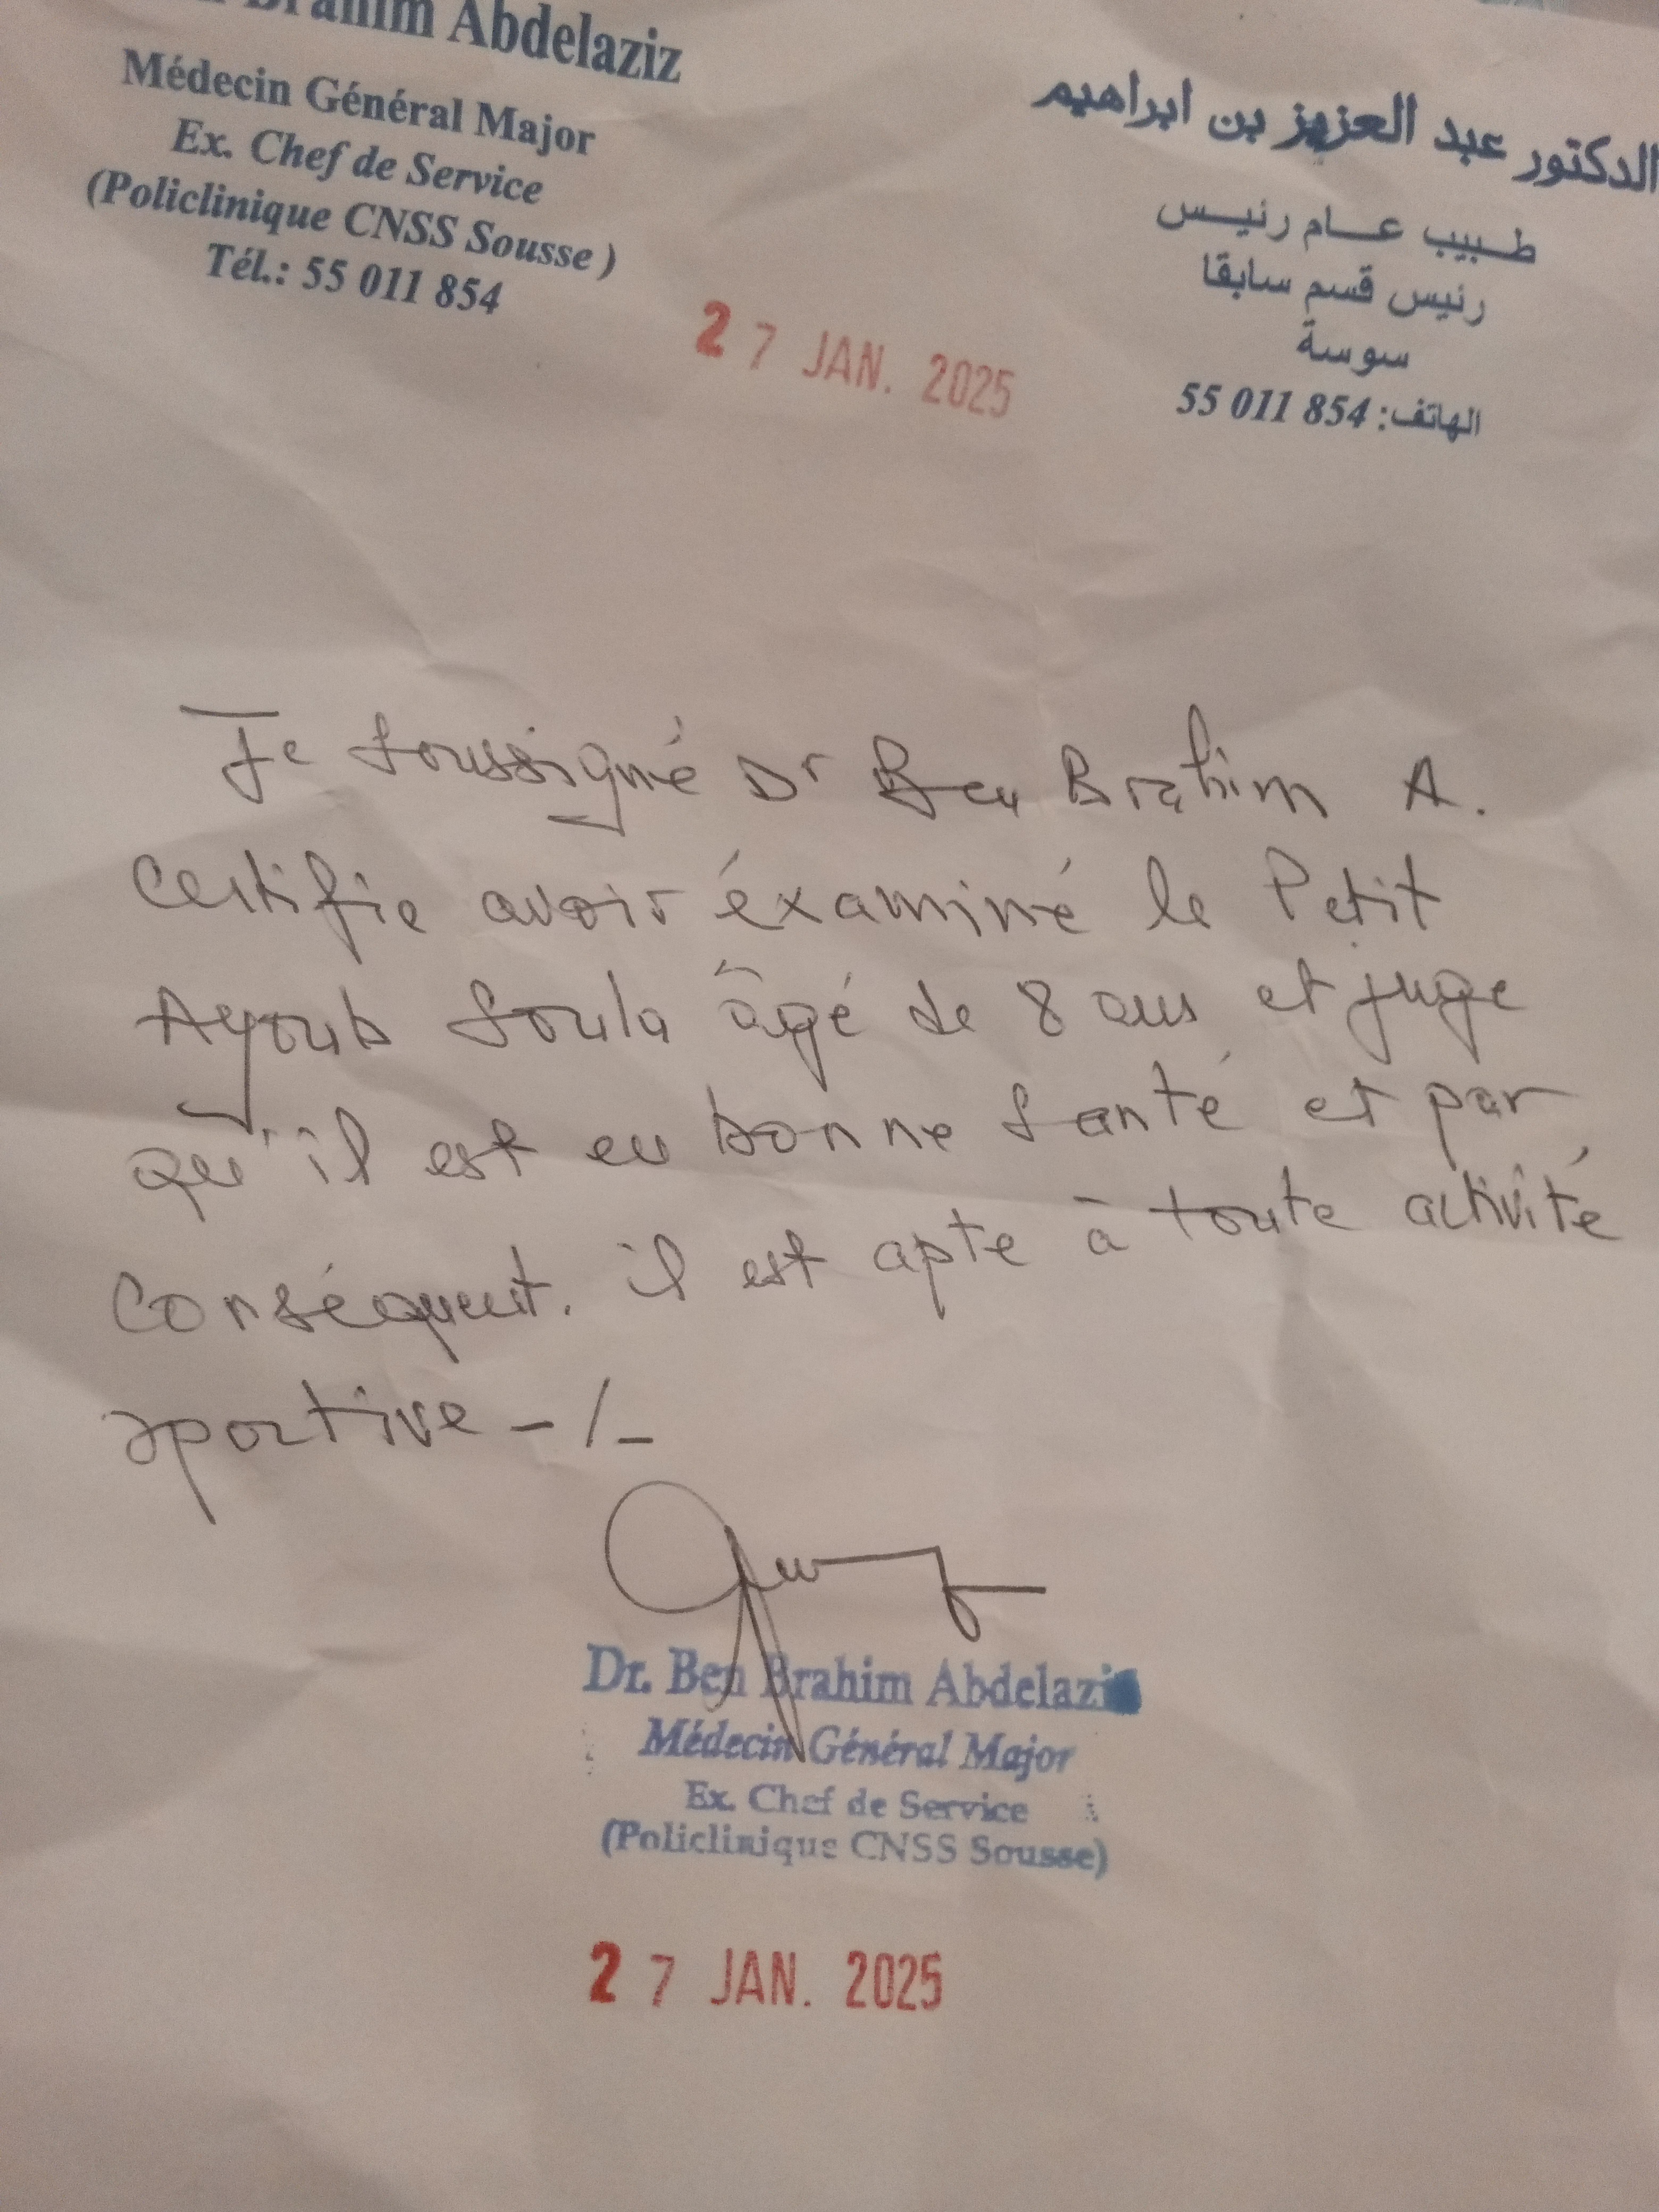 Brahim Abdelaziz
Médecin Général Major
Ex. Chef de Service
(Policlinique CNSS Sousse )
Tél.: 55 011 854
الدكتور عبد العزيز بن ابراهيم
طبيب عام رئيس
رئيس قسم سابقا
سوسة
الهاتف: 55 011 854
27 JAN. 2025
Je soussigné Dr Ben Brahim A.
Certifie avoir éxaminé le Petit
Ayoub Soula âgé de 8 ans et juge
qu'il est en bonne santé et par
conséquent. il est apte à toute activité
sportive -/-
Dr. Ben Brahim Abdelaziz
Médecin Général Major
Ex. Chef de Service
(Policlinique CNSS Sousse)
27 JAN. 2025